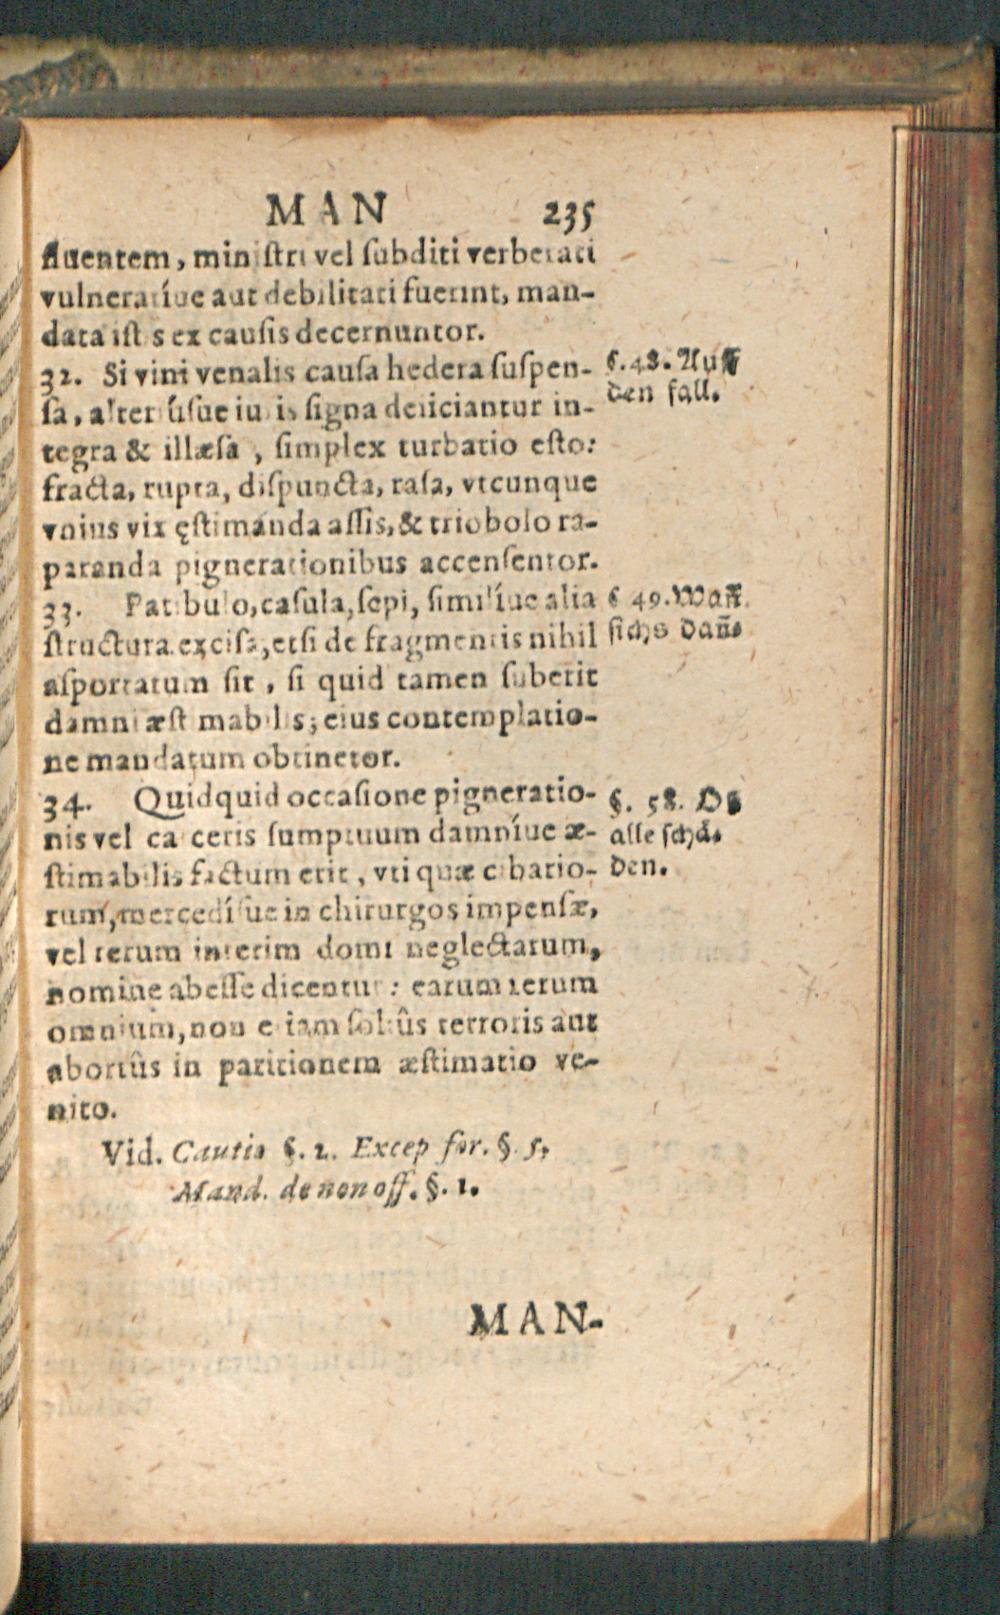 MAN 235
fluentem, ministri vel ſubditi verberati
vulneratíue aut debilitati fuerint, man-
data iſt s ex cauſis decernuntor.
32. Si vini venalis cauſa hedera ſuſpen-
ſa, alteriúſue iuris ſigna deiiciantur in-
tegra & illæſa, ſimplex turbatio eſto:
fracta, rupta, diſpuncta, raſa, vtcunque
vnius vix ęſtimanda aſſis, & triobolo ra-
paranda pignerationibus accenſentor.
33. Patibulo, caſula, ſepi, ſimilíue alia
ſtructura exciſa, etſi de fragmentis nihil
aſportatum ſit, ſi quid tamen ſuberit
damni æſt mabil s; eius contemplatio-
ne mandatum obtinetor.
34. Quidquid occaſione pigneratio-
nis vel carceris ſumptuum damníue æ-
ſtimabilis factum erit, vti quæ cibario-
rum, mercedíſue in chirurgos impenſæ,
vel rerum interim domi neglectarum,
nomine abeſſe dicentur: earum rerum
omnium, non etiam ſoliûs terroris aut
abortûs in partitionem æſtimatio ve-
nito.
Vid. Cautio §. 2. Excep for. §. 5.
Mand. de non off. §. 1.
MAN-
§. 48. Auff
den fall.
§ 49. Wañ
ſichs dañ.
§. 58. Ob
alle ſchä-
den.